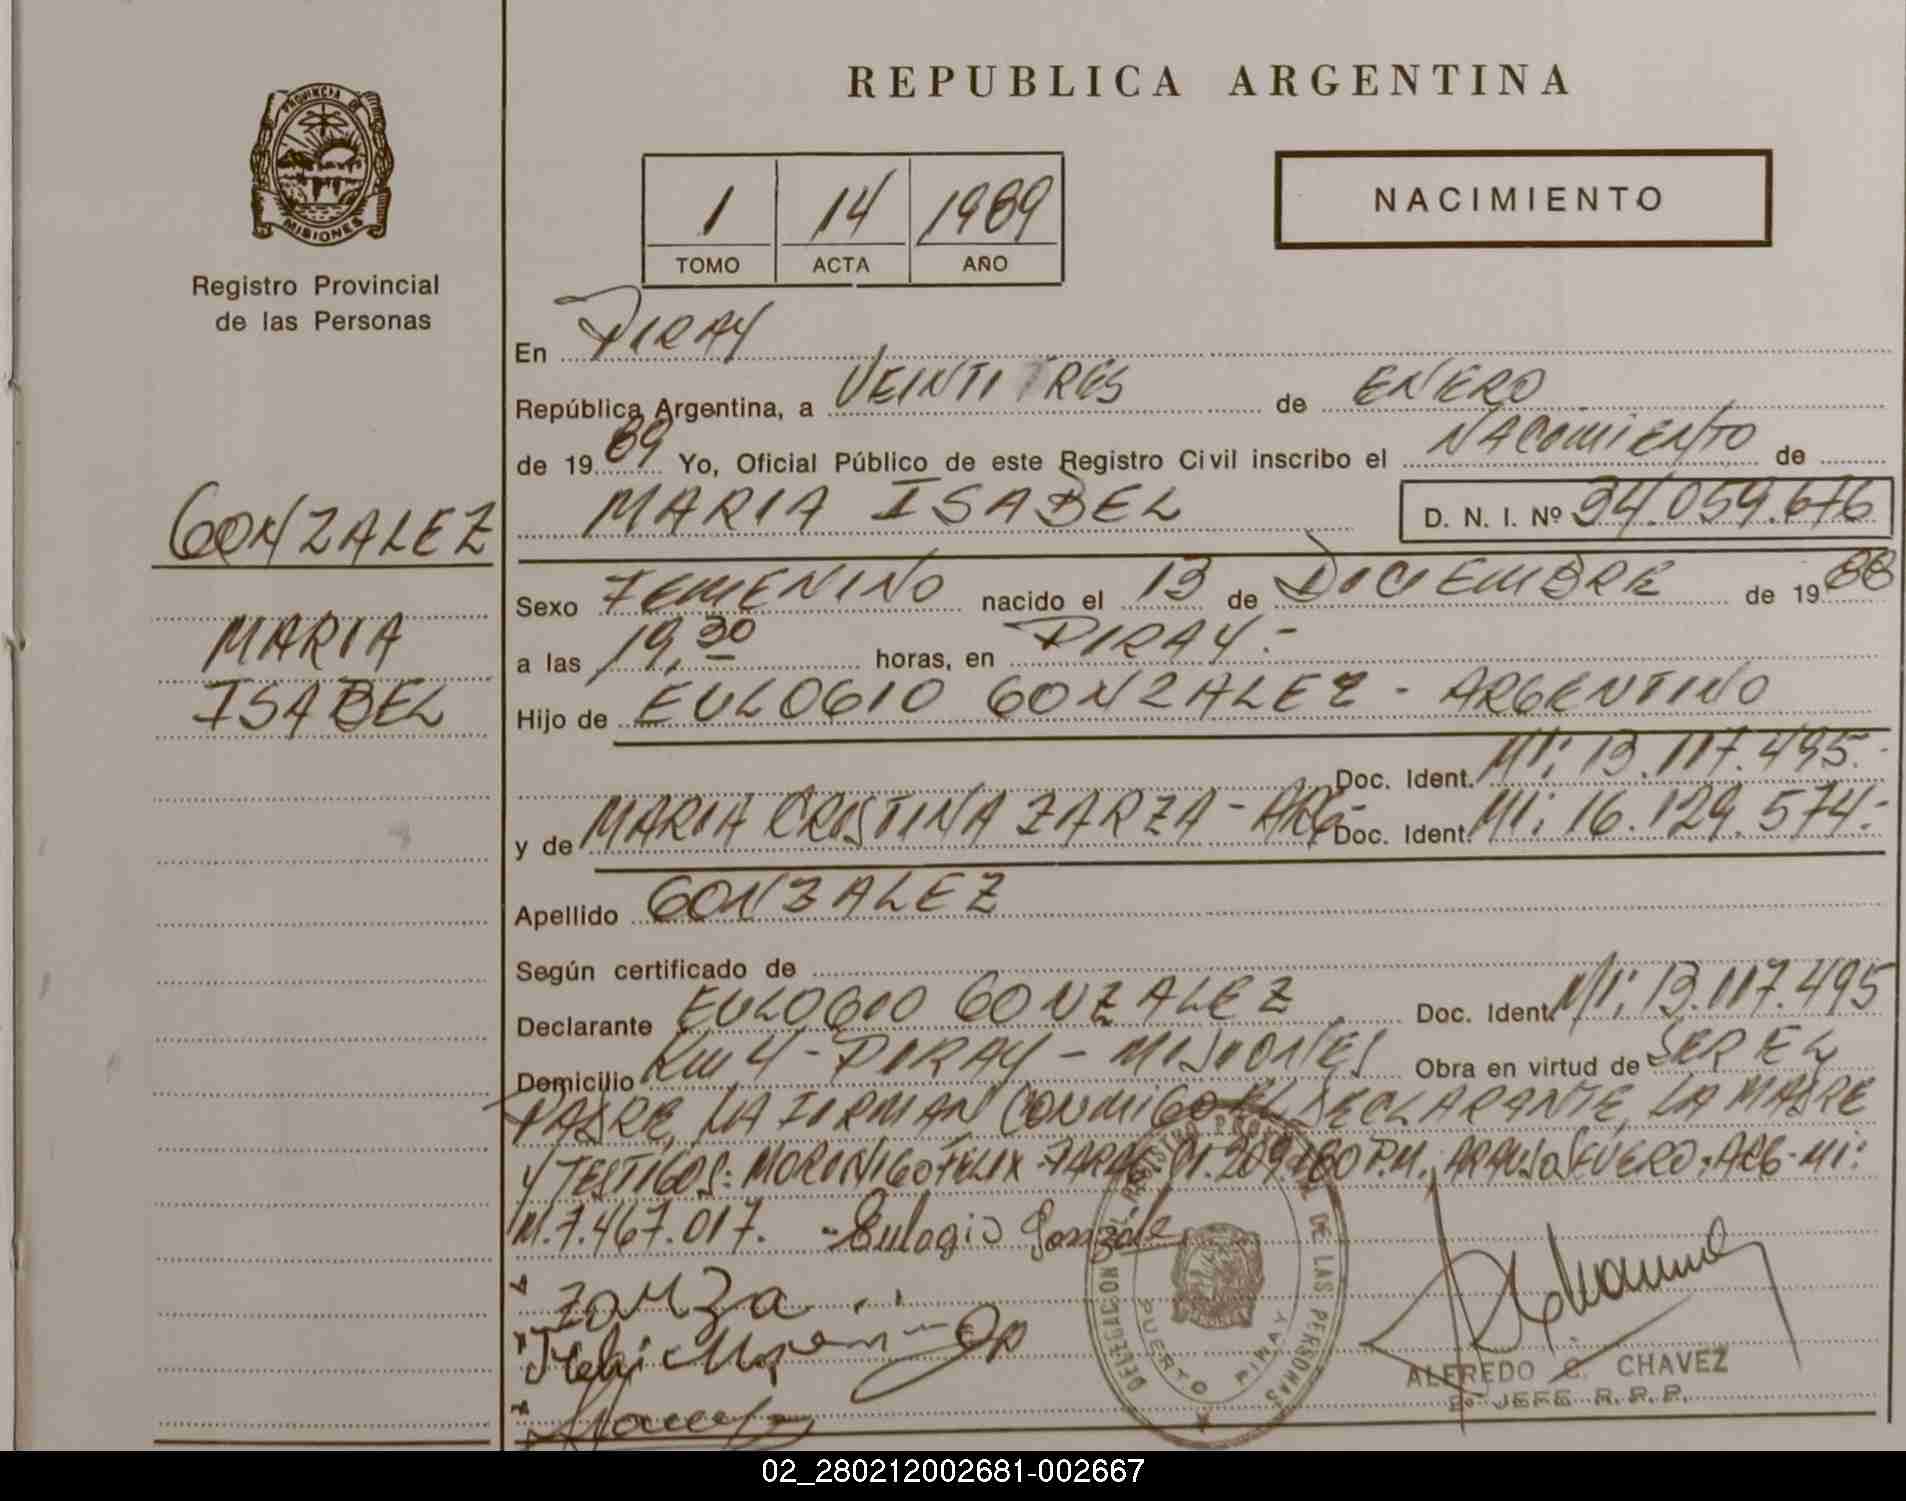 REPUBLICA ARGENTINA
PROVINCIA DE
MISIONES
Registro Provincial
de las Personas
1 14 1989
TOMO ACTA AÑO
NACIMIENTO
En PIRAY
República Argentina, a VEINTITRES de ENERO
de 1989 Yo, Oficial Público de este Registro Civil inscribo el NACIMIENTO de
MARIA ISABEL D. N. I. Nº 34.059.676
GONZALEZ
MARIA
ISABEL
Sexo FEMENINO nacido el 13 de DICIEMBRE de 1988
a las 19,30 horas, en PIRAY.-
Hijo de EULOGIO GONZALEZ - ARGENTINO
Doc. Ident. MI: 13.117.495.-
y de MARIA CRISTINA ZARZA - ARG- Doc. Ident. MI: 16.129.574.-
Apellido GONZALEZ
Según certificado de
Declarante EULOGIO GONZALEZ Doc. Ident. MI: 13.117.495
Domicilio KM 4 - PIRAY - MISIONES Obra en virtud de SER EL
PADRE, LA FIRMAN CONMIGO EL DECLARANTE, LA MADRE
Y TESTIGOS: MORINIGO FELIX - P.M. ARAUJO SEVERO - ARG - MI:
M.7.467.017. - Eulogio Gonzale
Zarza
DELEGACION DEL REGISTRO PROVINCIAL DE LAS PERSONAS
PUERTO PIRAY
ALFREDO C. CHAVEZ
2º JEFE R. P. P.
02_280212002681-002667